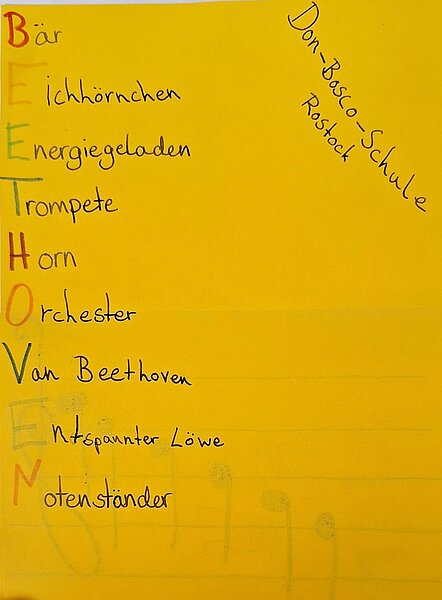 Bär
Eichhörnchen
Energiegeladen
Trompete
Horn
Orchester
Van Beethoven
Entspannter Löwe
Notenständer
Don-Bosco-Schule
Rostock